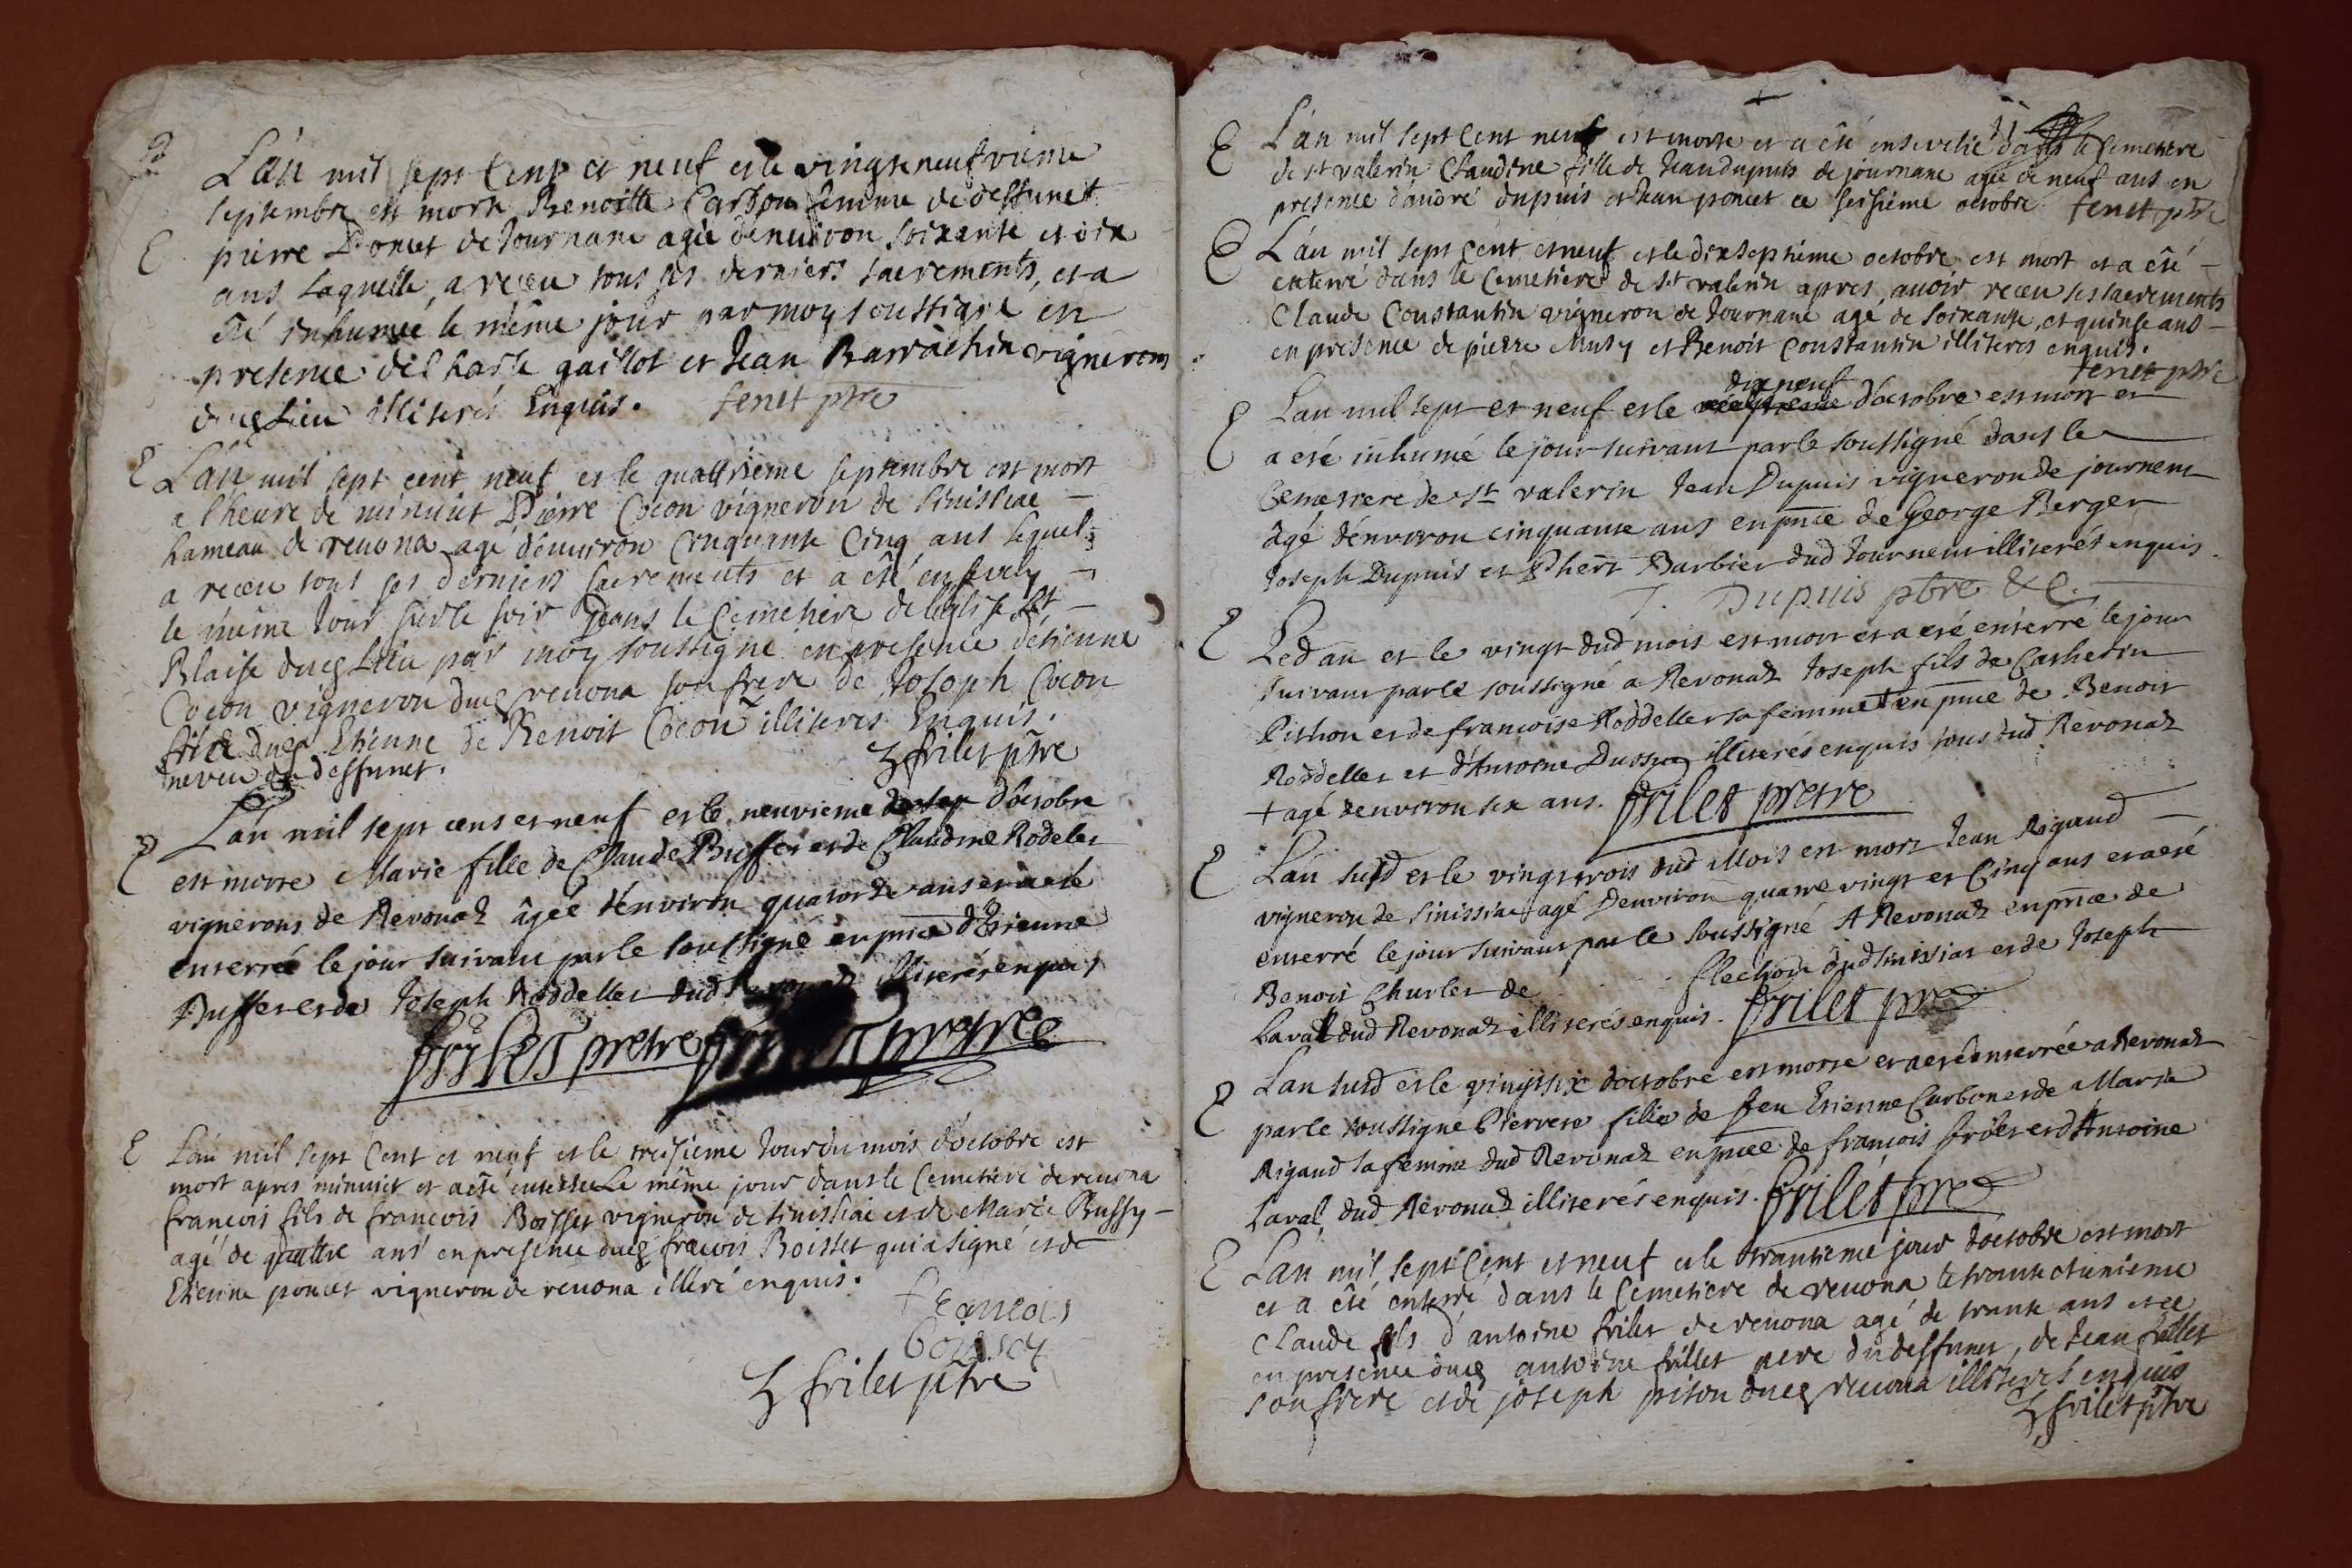 E
L'an mil sept Cent et neuf et le vingt neufvieme
septembre est morte Benoitte Carbon femme de deffunct
pierre Poncet de Journane agée denuiron soixante et dix
ans laquelle, a receu tous ses derniers sacrements, et a
été inhumée le même jour par moy soussigné en
presence de Charle gaillot et Jean Barrachin vignerons
duq Lieu illiteres Enquis. fenet ptre
E L'an mil sept cent neuf et le quattrieme septembre est mort
a l'heure de minuict Pierre Cocon vigneron de Sinissiac
hameau de reuona agé d'enuiron Cinquante Cinq ans lequel
a receu tous ses derniers sacrements et a été enseuely
le même Jour sur le soir Dans le Cemetiere de l'eglise st
Blaise duq Lieu par moy soussigné en presence d'etienne
Cocon vigneron duq reuona son frere de Joseph Cocon
fils duq Etienne de Benoit Cocon illiteres Enquis.
neveu du deffunct. frilet ptre
E L'an mil sept cens et neuf et le neuvieme d'octobre
est morte Marie fille de Claude Buffet et de Claudine Rodelet
vignerons de Revonaz âgée d'environ quatorze ans et a eté
enterrée le jour suivant par le soussigné en pnce d'Etienne
Buffet et de Joseph Roddellet dud Revonaz illiterés enquis
frilet pretre frilet pretre
E L'an mil sept Cent et neuf et le treisieme Jour du mois d'octobre est
mort apres minuict et a été enterré Le même jour dans le Cemetiere de reuona
francois fils de francois Boisset vigneron de sinissiac et de Marie Bussy
agé de quattre ans en presence duq francois Boisset qui a signé et de
Etienne poncet vigneron de reuona illiteré enquis.
francois
boisset
frilet ptre
E L'an mil sept Cent neuf est morte et a été ensevelie dans le Cemetiere
de st valerin Claudine fille de Jean dupuis de journane agée de neuf ans en
presence d'andré dupuis et Jean poncet ce seisieme octobre fenet ptre
E L'an mil sept cent et neuf et le dix septieme octobre est mort et a été
enterré dans le Cemetiere de st valerin apres, auoir receu ses sacrements
Claude Constantin vigneron de Journane agé de soixante, et quinse ans
en presence de pierre Musy et Benoit Constantin illiteres enquis.
fenet ptre
dix neuf
E L'an mil sept et neuf et le d'octobre est mort et
a eté inhumé le jour suivant par le soussigné dans le
Cemettere de St valerin Jean Dupuis vigneron de journent
âgé d'environ cinquante ans en pnce de George Berger
Joseph Dupuis et Phert Barbier dud Journent illiterés enquis.
J. Dupuis ptre &c.
E Led an et le vingt dud mois est mort et a eté enterré le jour
suivant par le soussigné a Revonaz Joseph fils de Catherin
Pithon et de francoise Roddellet sa femme + en pnce de Benoit
Roddellet et d'Antoine Dussuc illiterés enquis tous dud Revonaz
+ agé d'environ six ans. frilet pretre
E L'an susd et le vingt trois dud Mois est mort Jean Rigaud
vigneron de Sinissiac agé d'environ quatre vingt et Cinq ans et a eté
enterré le jour suivant par le soussigné A Revonaz en pnce de
Benoit Churlet de flechon dud Sinissiat et de Joseph
Laval dud Revonaz illiterés enquis. frilet pre
E L'an susd et le vingt six d'octobre est morte et a eté enterrée a Revonaz
par le soussigné Pierrete fille de feu Etienne Carbon et de Marie
Rigaud sa femme dud Revonaz en pnce de francois frilet et d'Antoine
Laval, dud Revonaz illiterés enquis. frilet pre
E L'an mil sept Cent et neuf et le trantieme jour d'octobre est mort
et a été enterré dans le Cemetiere de reuona le trante et unieme
Claude fils d'antoine frilet de reuona agé de trante ans et ce
en presence duq antoine frillet pere du deffunct, de Jean frillet
son frere et de joseph piton duq reuona illiterés enquis
frilet ptre